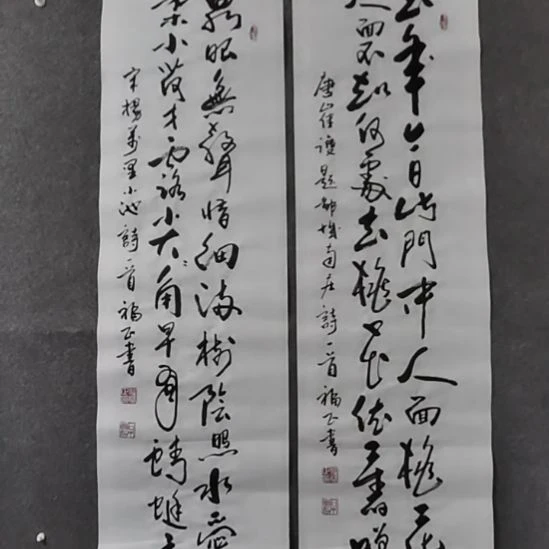 去年今日此門中人面桃花
人面不知何處去桃花依舊
唐崔護題都城南庄詩一首 福正書
泉眼無聲惜細流樹陰照水愛
柔小荷才露尖〻角早有蜻蜓立
宋楊萬里小池詩一首 福正書